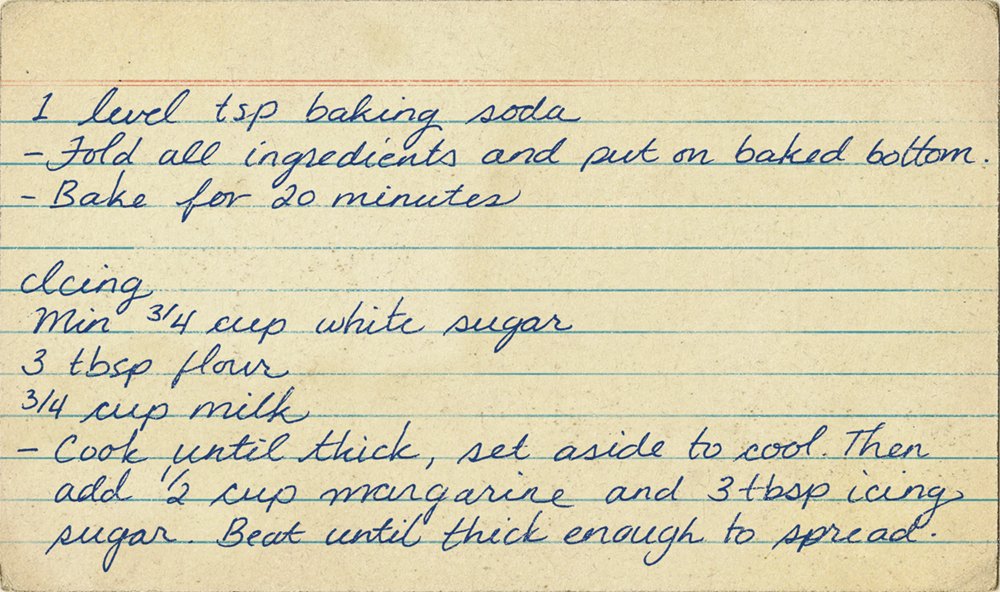 1 level tsp baking soda
- Fold all ingredients and put on baked bottom.
- Bake for 20 minutes
Icing
Min 3/4 cup white sugar
3 tbsp flour
3/4 cup milk
- Cook until thick, set aside to cool. Then
add 1/2 cup margarine and 3 tbsp icing
sugar. Beat until thick enough to spread.